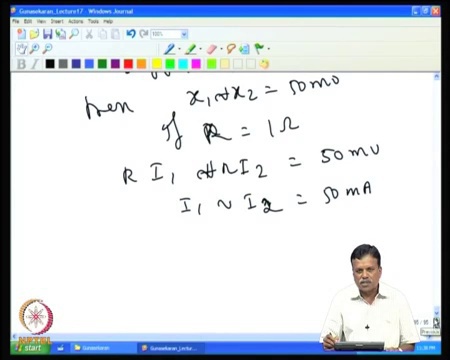 Gunasekaran_Lecture17 - Windows Journal
File Edit View Insert Actions Tools Help
100%
then x₁ ~ x₂ = 50 mv
If R = 1Ω
R I₁ ~ R I₂ = 50 mv
I₁ ~ I₂ = 50 mA
NPTEL
start Gunasekaran Gunasekaran_Lectur...